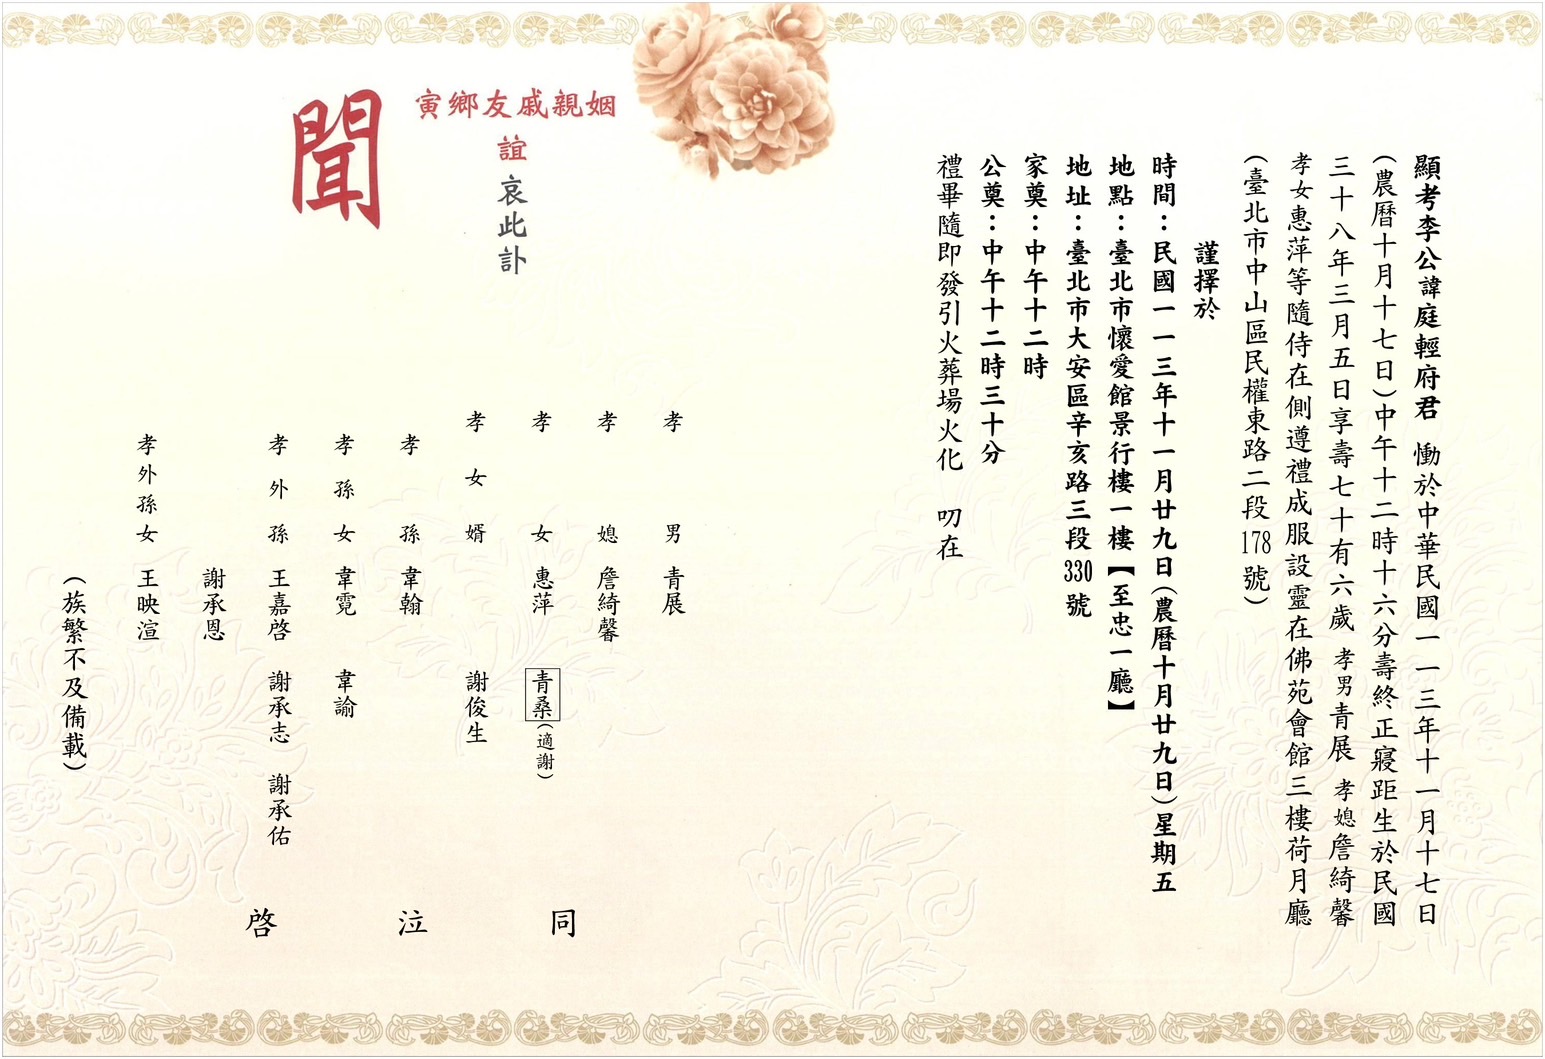 顯考李公諱庭輕府君 慟於中華民國一一三年十一月十七日
(農曆十月十七日)中午十二時十六分壽終正寢距生於民國
三十八年三月五日享壽七十有六歲 孝男青展 孝媳詹綺馨
孝女惠萍等隨侍在側遵禮成服設靈在佛苑會館三樓荷月廳
(臺北市中山區民權東路二段178號)
謹擇於
時間：民國一一三年十一月廿九日(農曆十月廿九日)星期五
地點：臺北市懷愛館景行樓一樓【至忠一廳】
地址：臺北市大安區辛亥路三段330號
家奠：中午十二時
公奠：中午十二時三十分
禮畢隨即發引火葬場火化 叨在
姻親戚友鄉寅
誼 哀此訃
聞
孝男 青展
孝媳 詹綺馨
孝女 惠萍 青桑(適謝)
孝女婿 謝俊生
孝孫 韋翰
孝孫女 韋霓 韋諭
孝外孫 王嘉啓 謝承志 謝承佑
謝承恩
孝外孫女 王映渲
(族繁不及備載)
同泣啓